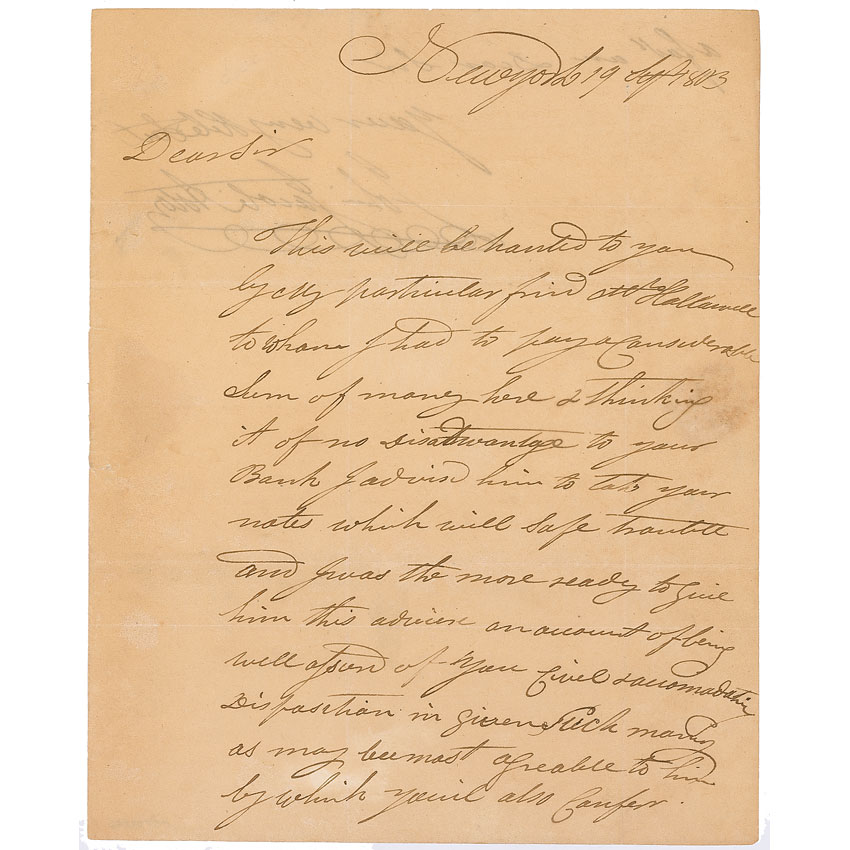 New york 19 Sept 1803
Dear Sir
This will be handed to you
by My particular frind Mr Hallawell
to whom I had to pay a Considerable
Sum of money here & thinking
it of no Disadwantage to your
Bank I advisd him to take your
notes which will Safe trouble
and I was the more ready to give
him this advice on account of being
well assurd of your Civel & accomadating
Disposition in given Such money
as may bee most agreable to him
by which you'll also Confer